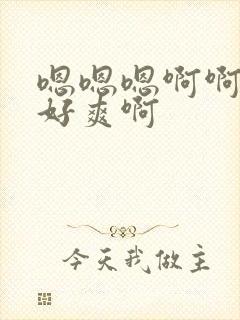 嗯嗯嗯啊啊
好爽啊
今天我做主